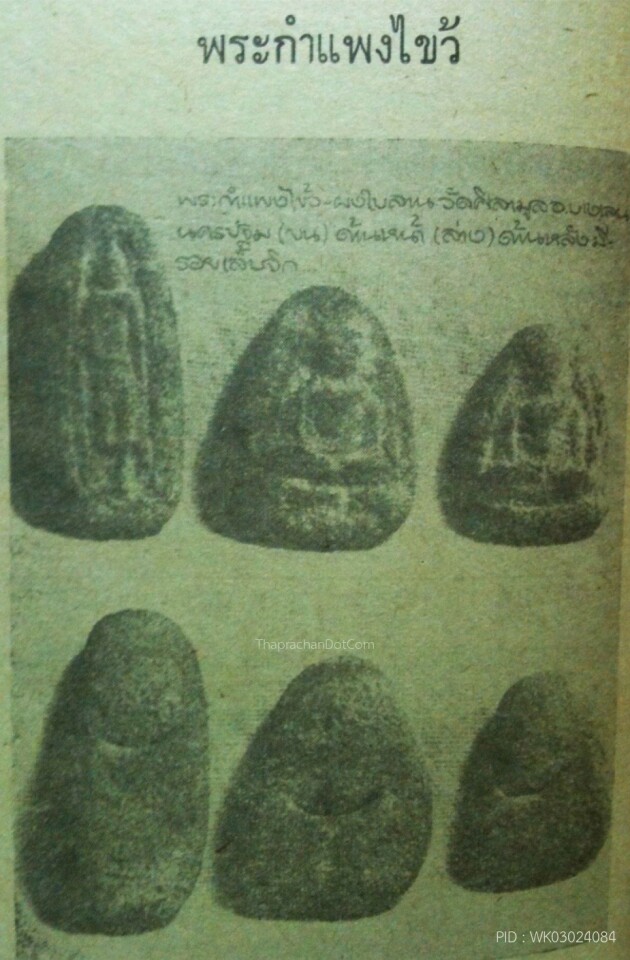 พระกำแพงไขว้
พระกำแพงไขว้-ผงใบลาน วัดศีลามูล อ.บางเลน
นครปฐม (บน) ด้านหน้า (ล่าง) ด้านหลังมี
รอยเล็บจิก
ThaprachanDotCom
PID : WK03024084